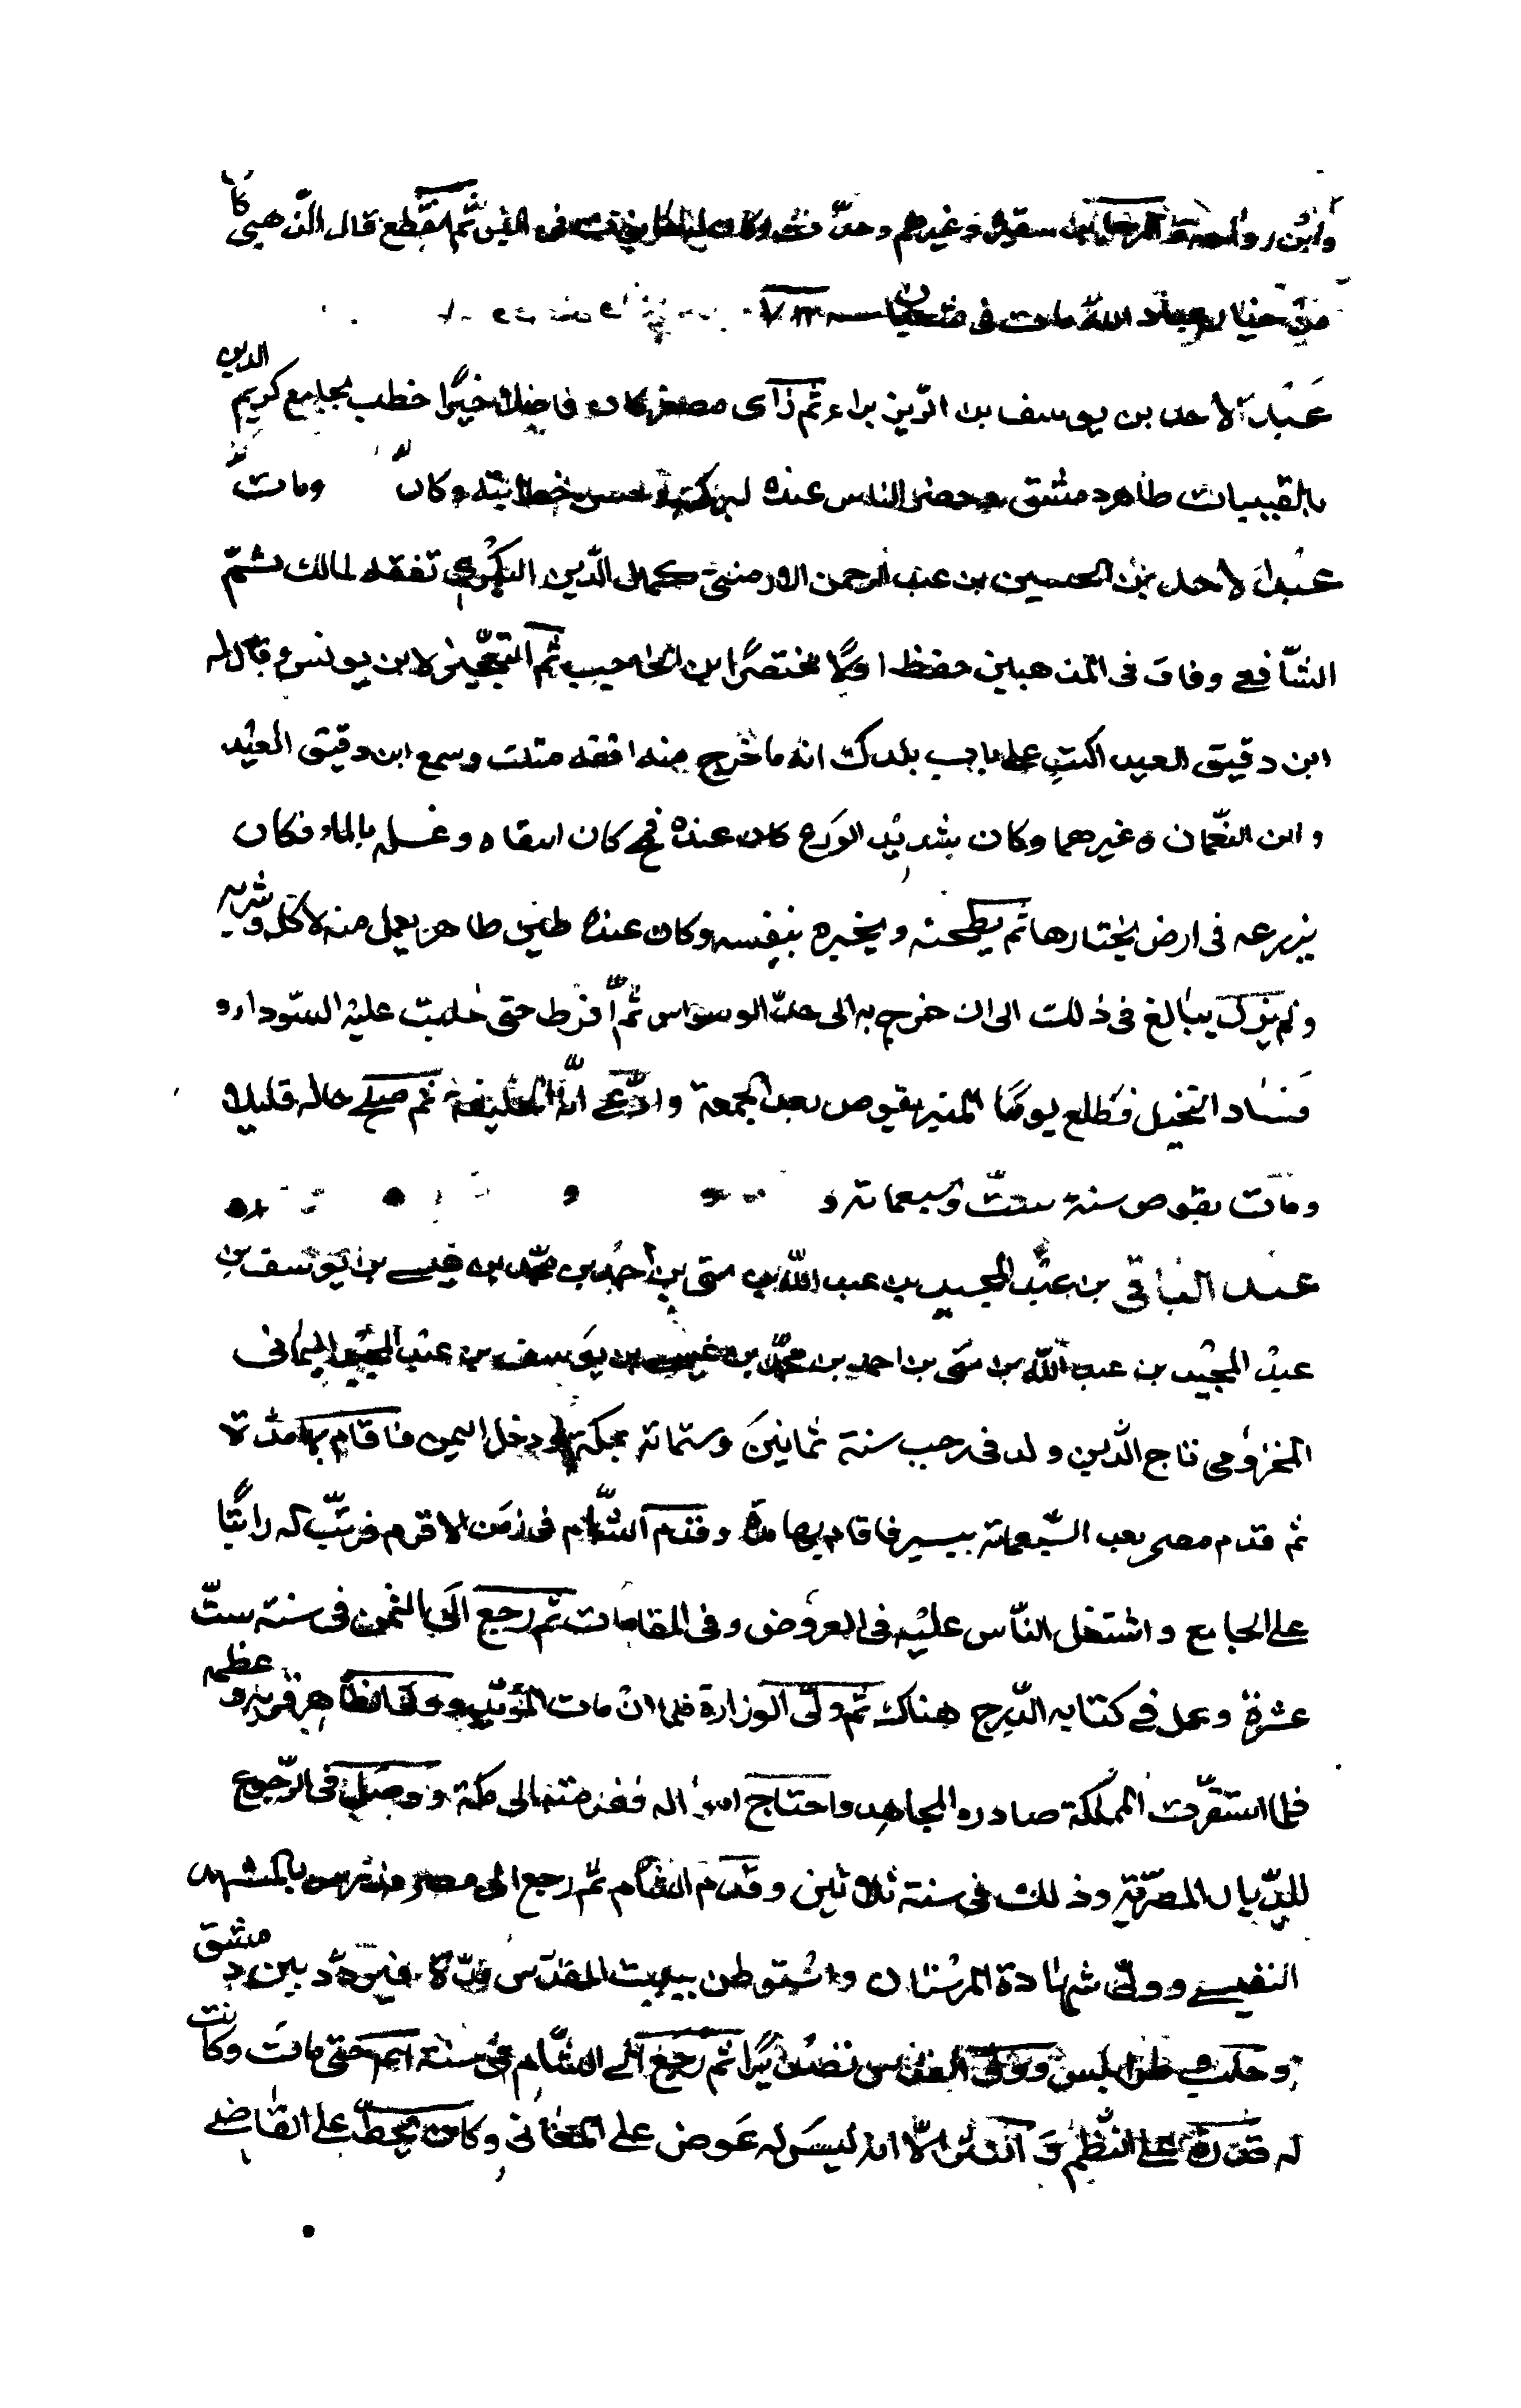 وابن رواحة وغيرهم وحدث ثم انقطع قال الذهبي كا
من خيار عباد الله مات في شعبان سنة ٧١٣
عبد الاحد بن يوسف بن الرزيز براء ثم زاى مصغر كان فاضلا خيرا خطب بجامع كريم الدين
بالقبيبات ظاهر دمشق وحضر الناس عنده لبركته وحسن خطابته وكان ومات
عبد الاحد بن الحسين بن عبد الرحمن الارمنتي كمال الدين البكري تفقه لمالك ثم
الشافعي وفاق في المذهبين حفظ اولا مختصر ابن الحاجب ثم التعجيز لابن يونس وقال له
ابن دقيق العيد اكتب على باب بلدك انه ما خرج منه افقه منك وسمع ابن دقيق العيد
و ابن النعمان وغيرهما وكان شديد الورع كان عنده قمح كان انتقاه وغسله بالماء فكان
يزرعه في ارض يختارها ثم يطحنه ويخبزه بنفسه وكان عنده طين طاهر يعمل منه لاكله وشربه
ولم يزل يبالغ في ذلك الى ان خرج به الى حد الوسواس ثم افرط حتى غلبت عليه السوداء و
فساد التخيل فطلع يوما المنبر بقوص بعد الجمعة وادعى انه الخليفة ثم صلح حاله قليلا
ومات بقوص سنة ست وسبعمائة
عبد الباقي بن عبد المجيد بن عبد الله بن متى بن احمد بن محمد بن عيسى بن يوسف بن
عبد المجيد بن عبد الله بن متى بن احمد بن محمد بن عيسى بن يوسف بن عبد المجيد اليماني
المخزومي تاج الدين ولد في رجب سنة ثمانين وستمائة بمكة ودخل اليمن فاقام بها مدة
ثم قدم مصر بعد السبعمائة بيسير فاقام بها مدة وقدم الشام في زمن الافرم فرتب له راتبا
على الجامع واشتغل الناس عليه في العروض وفي المقامات ثم رجع الى اليمن في سنة ست
عشرة وعمل في كتابه الدرج هناك ثم ولى الوزارة فلما ان مات المؤيد وولى الظاهر قربه وعظمه
فلما استقرت المملكة صادره المجاهد واحتاج امواله ففر منه الى مكة ووصل في الرجوع
للديار المصرية وذلك في سنة ثلاثين وقدم الشام ثم رجع الى مصر فدرس بالمشهد
النفيسى وولى شهادة المرستان واستوطن ببيت المقدس مدة فيتردد بين دمشق
وحلب و طرابلس وولى القدس تصديرا ثم رجع الى الشام في سنة ٤١ حتى مات وكانت
له قدرة على النظم و النثر الا انه ليس له غوص على المعاني وكان يحط على القاضى